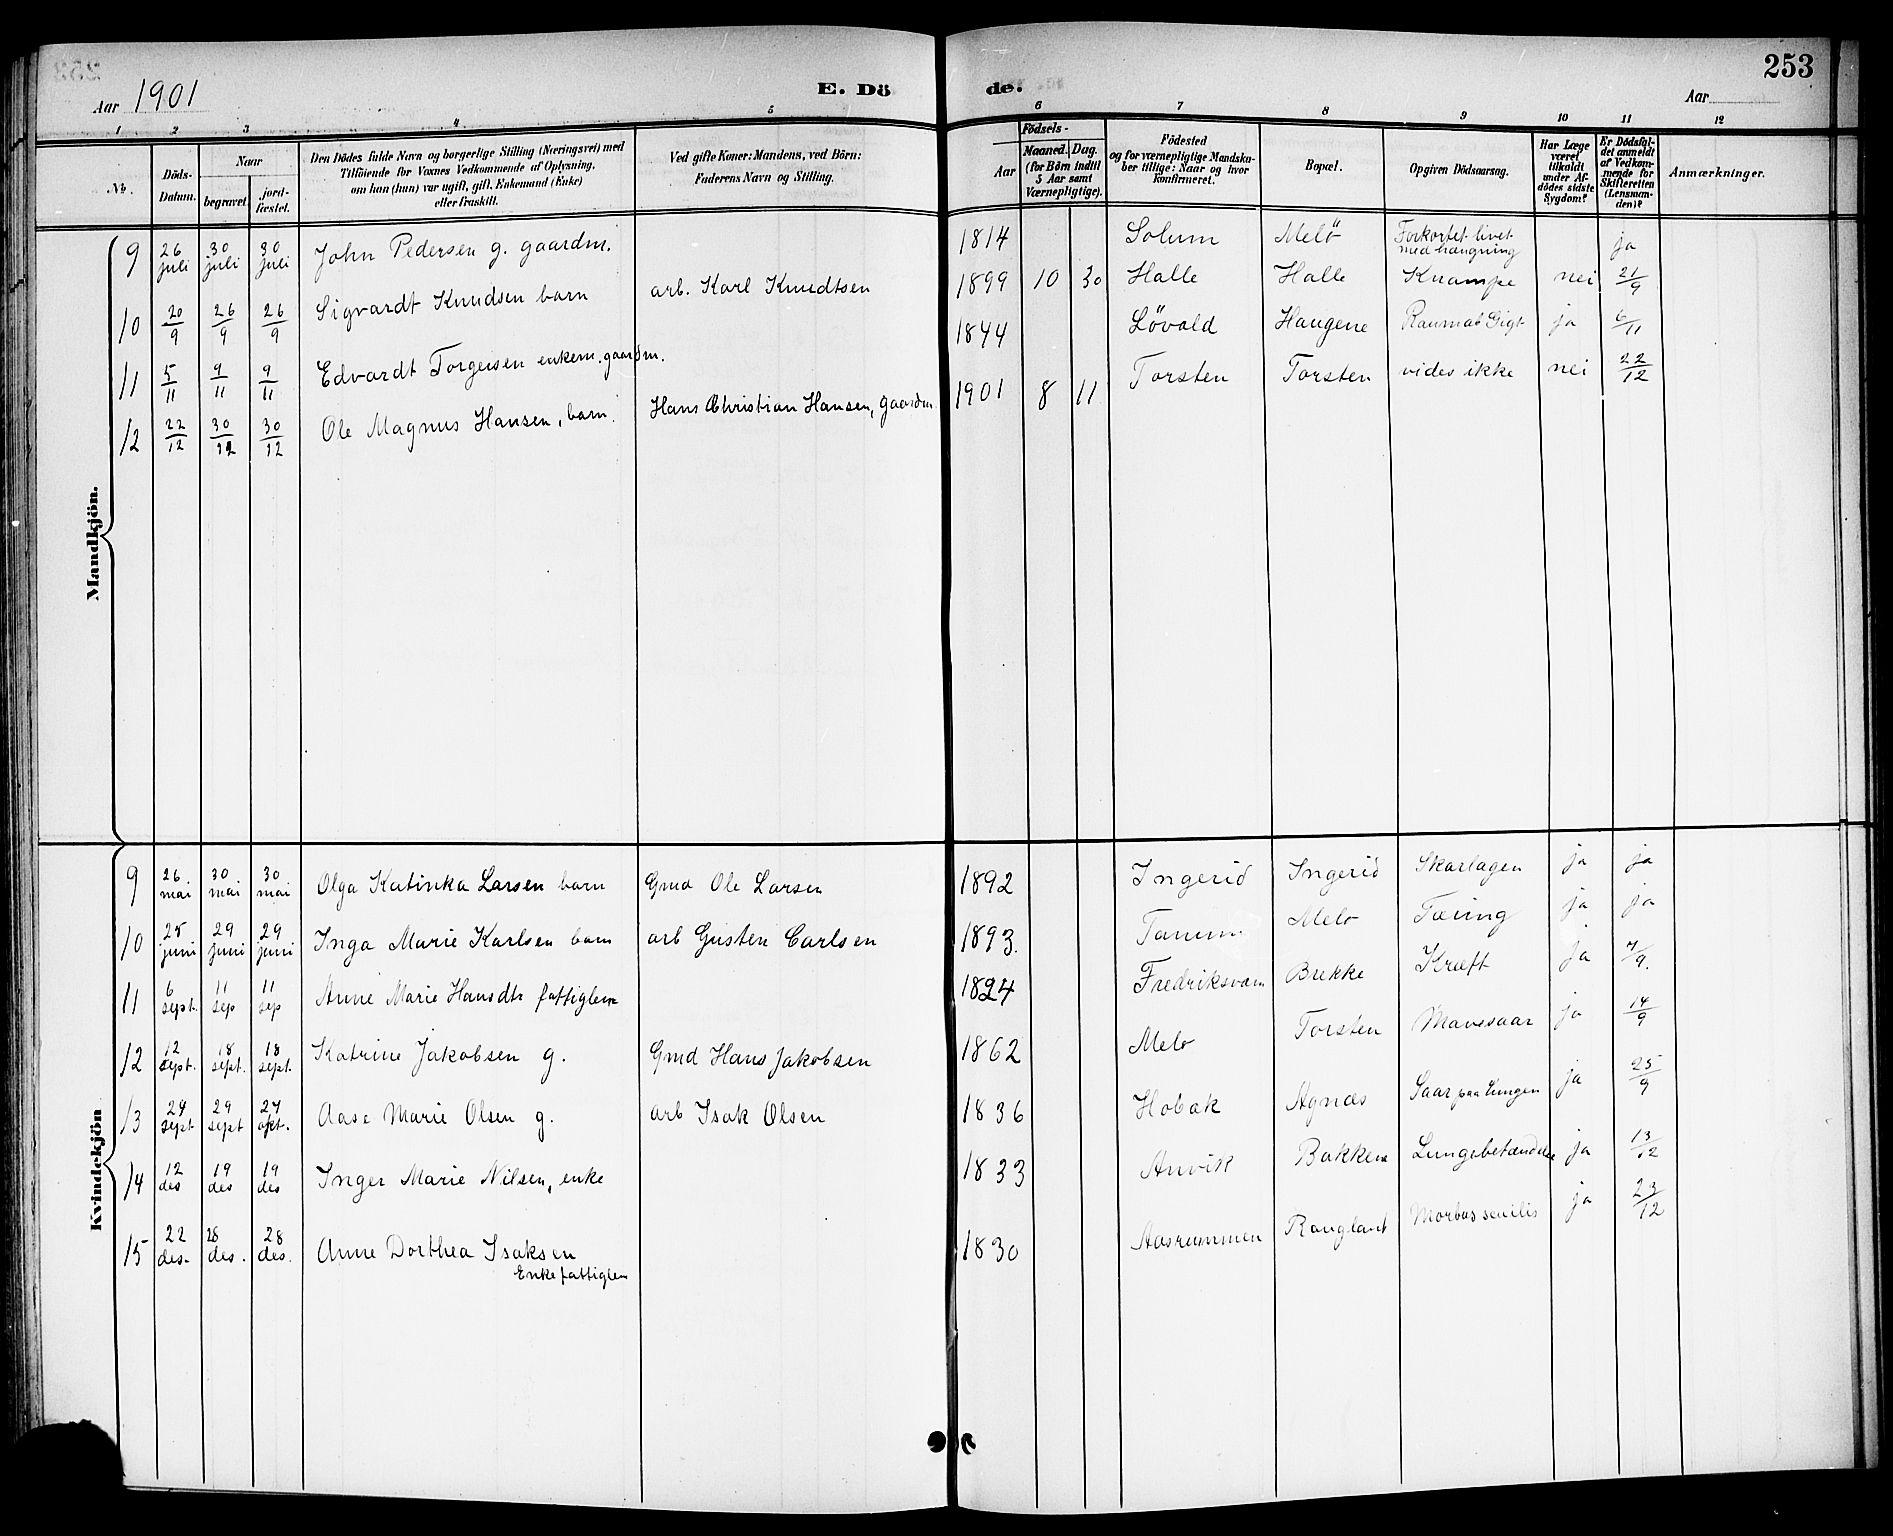 253
Aar 1901
E. Dö
de.
Aar
1 2 3 4 5 6 7 8 9 10 11 12
No.
Döds-
Datum.
Naar
begravet.
jord-
fæstet.
Den Dödes fulde Navn og borgerlige Stilling (Næringsvei) med
Tilföiende for Voxnes Vedkommende af Oplysning,
om han (hun) var ugift, gift, Enkemand (Enke)
eller fraskilt.
Ved gifte Koner: Mandens, ved Börn:
Faderens Navn og Stilling.
Födsels-
Aar
Maaned. Dag.
(for Börn indtil
5 Aar samt
Værnepligtige).
Födested
og for værnepligtige Mandska-
ber tillige: Naar og hvor
konfirmeret.
Bopæl.
Opgiven Dödsaarsag.
Har Læge
været
tilkaldt
under Af-
dödes sidste
Sygdom?
Er Dödsfal-
det anmeldt
af Vedkom-
mende for
Skifteretten
(Lensman-
den)?
Anmærkninger.
Mandkjön.
9 26 juli 30 juli 30 juli John Pedersen g. gaardm. 1814 Solum Melö Forkortet livet med hængning ja
10 20/9 26/9 26/9 Sigvardt Knudsen barn arb. Karl Knudtsen 1899 10 30 Halle Halle Knampe nei 21/9
11 5/11 9/11 9/11 Edvardt Torgersen enkem. gaardm. 1844 Lövald Haugene Raumat Gigt ja 6/11
12 22/12 30/12 30/12 Ole Magnus Hansen, barn. Hans Christian Hansen, gaardm 1901 8 11 Torsten Torsten vides ikke nei 22/12
Kvindekjön
9 26 mai 30 mai 30 mai Olga Katinka Larsen barn Gmd Ole Larsen 1892 Ingerid Ingerid Skarlagen ja ja
10 25 juni 29 juni 29 juni Inga Marie Karlsen barn arb Gusten Carlsen 1893. Tamm Melo Tæring ja ja
11 6 sept. 11 sep 11 sep Anne Marie Hansdtr fattiglem 1824 Fredriksværn Brekke Kræft ja 7/9.
12 12 sept. 18 sept. 18 sept. Katrine Jakobsen g. Gmd Hans Jakobsen 1862 Melo Torsten Mavesaar ja 14/9
13 24 sept 29 sept 27 okt. Aase Marie Olsen g. arb Isak Olsen 1836 Hobæk Agnæs Saar paa Lungen ja 25/9
14 12 des 19 des 19 des Inger Marie Nilsen, enke 1833 Anvik Bakken Lungebetændelse ja 13/12
15 22 des. 28 des. 28 des. Anne Dorthea Isaksen 1830 Aasrummen Rangland Morbus senilis ja 23/12
Enke fattiglem